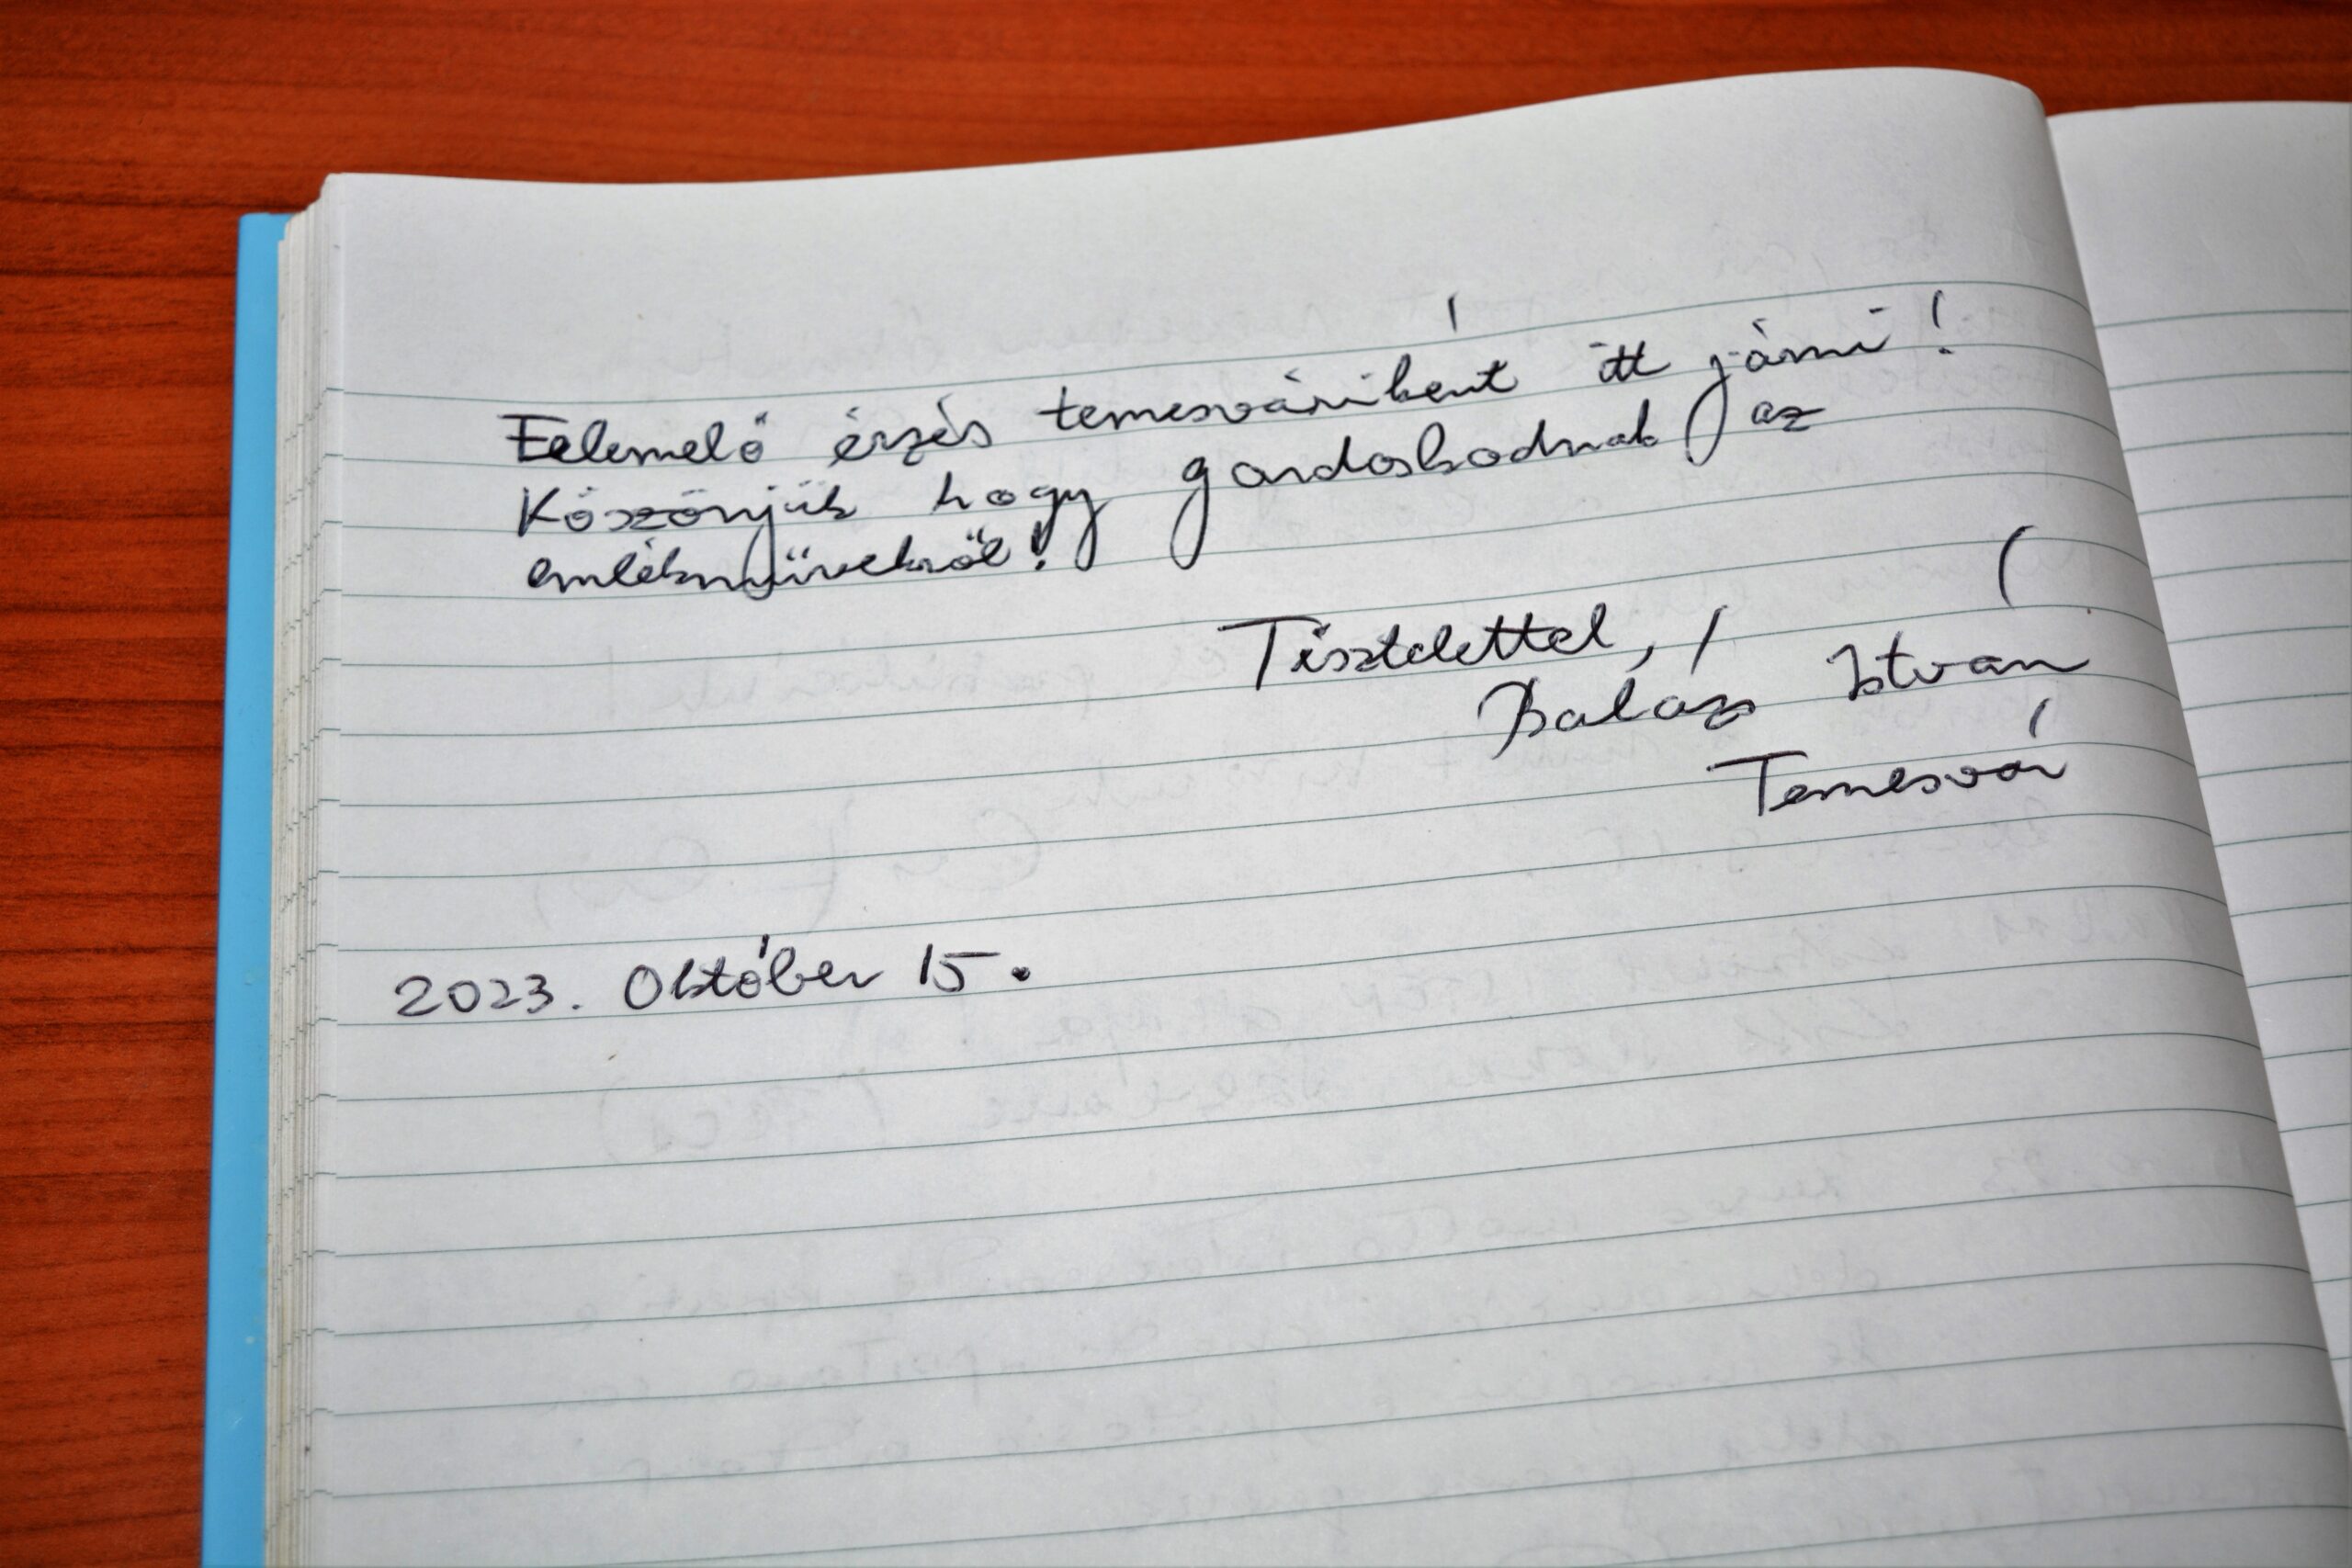 Felemelő érzés temesváriként itt járni!
Köszönjük hogy gondoskodnak az
emlékművekről!
Tisztelettel,
Balázs István
Temesvár
2023. Október 15.